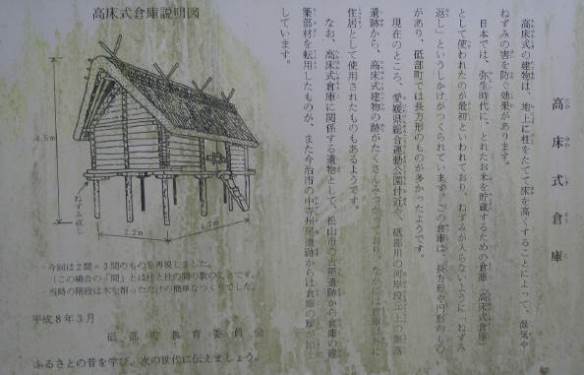 高床式倉庫
高床式の建物は、地上に柱をたてて床を高くすることによって、湿気や
ねずみの害を防ぐ効果があります。
日本では、弥生時代に、とれたお米を貯蔵するための倉庫（高床式倉庫）
として使われたのが最初といわれており、ねずみが入らないように「ねずみ
返し」というしかけがつくられています。この倉庫は、長方形や円形のもの
があり、砥部町では長方形のものが多かったようです。
現在のところ、愛媛県総合運動公園付近や、砥部川の河岸段丘上の集落
遺跡から、高床式建物の跡がたくさんみつかっており、なかには
住居として使用されたものもあるようです。
なお、高床式倉庫に関係する遺物として、松山市の古照遺跡から倉庫の建
築部材を転用したものが、また今治市の中寺州尾遺跡からは倉庫の
しています。
高床式倉庫説明図
4.5m
ねずみ返し
2.2m
今回は2間×3間のものを再現しました。
（この場合の「間」とは柱と柱の間の数のことです。）
当時の階段は木を削っただけの簡単なつくりでした。
平成8年3月
砥部町教育委員会
ふるさとの昔を学び、次の世代に伝えましょう。